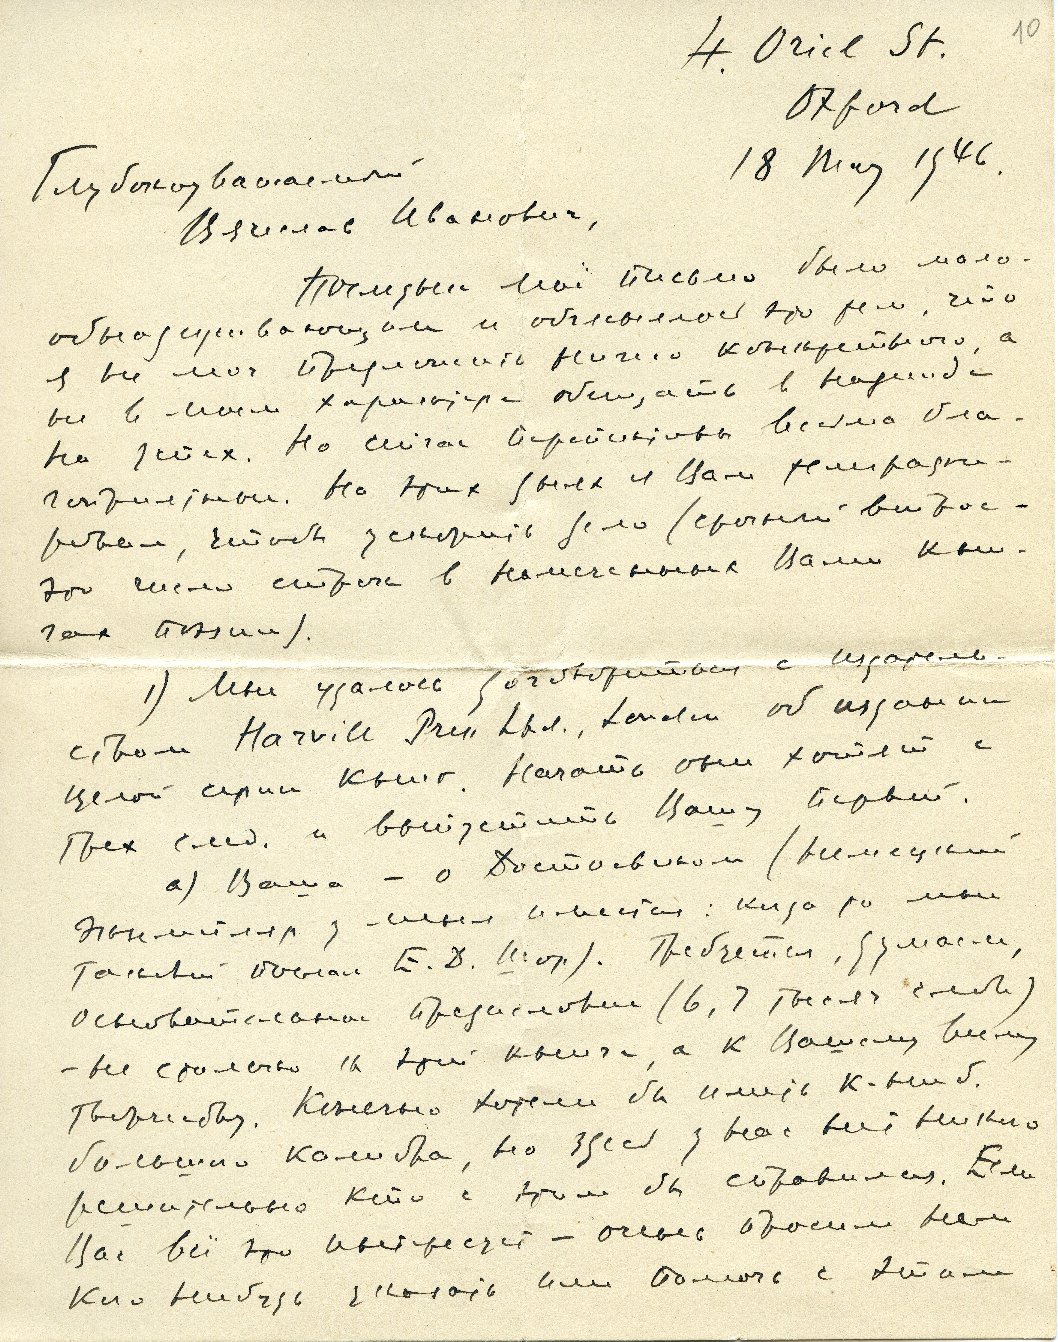 10
4. Oriel St.
Oxford
18 May 1946.
Глубокоуважаемый
Вячеслав Иванович,
Последнее моё письмо было мало-
обнадеживающим и объяснялось это тем, что
я не мог предложить ничего конкретного, а
не в моем характере обещать в надежде
на успех. Но сейчас перспективы весьма бла-
гоприятны. На этих днях я Вам телеграфи-
ровал, чтобы ускорить дело (срочный вопрос -
это число строк в намеченных Вами кни-
гах поэзии).
1) Мне удалось договориться с издатель-
ством Harvill Press Ltd., London об издании
целой серии книг. Начать они хотят с
трех след. и выпустить Вашу первой.
а) Ваша - о Достоевском (немецкий
экземпляр у меня имеется: когда то мне
таковой послал Е. Д. Шор). Требуется, думаем,
основательное предисловие (6, 7 тысяч слов)
- не столько к этой книге, а к Вашему всему
творчеству. Конечно хотели бы иметь к-ниб.
большого калибра, но здесь у нас нет никого
решительно кто с этим бы справился. Если
Вас всё это интересует - очень просим нам
кого нибудь указать или помочь с этим